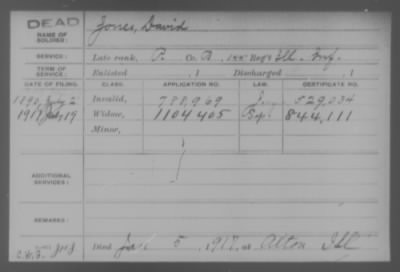 DEAD
NAME OF SOLDIER: Jones, David
SERVICE: Late rank, P. Co. 155 Reg't Ill. Inf.
TERM OF SERVICE: Enlisted , 1 Discharged , 1
DATE OF FILING. CLASS. APPLICATION NO. LAW. CERTIFICATE NO.
1890, July 2 Invalid, 788,969 529,034
1917, 19 Widow, 1104405 844,111
Minor,
ADDITIONAL SERVICES:
REMARKS:
Died 5, 1917, at Alton Ill